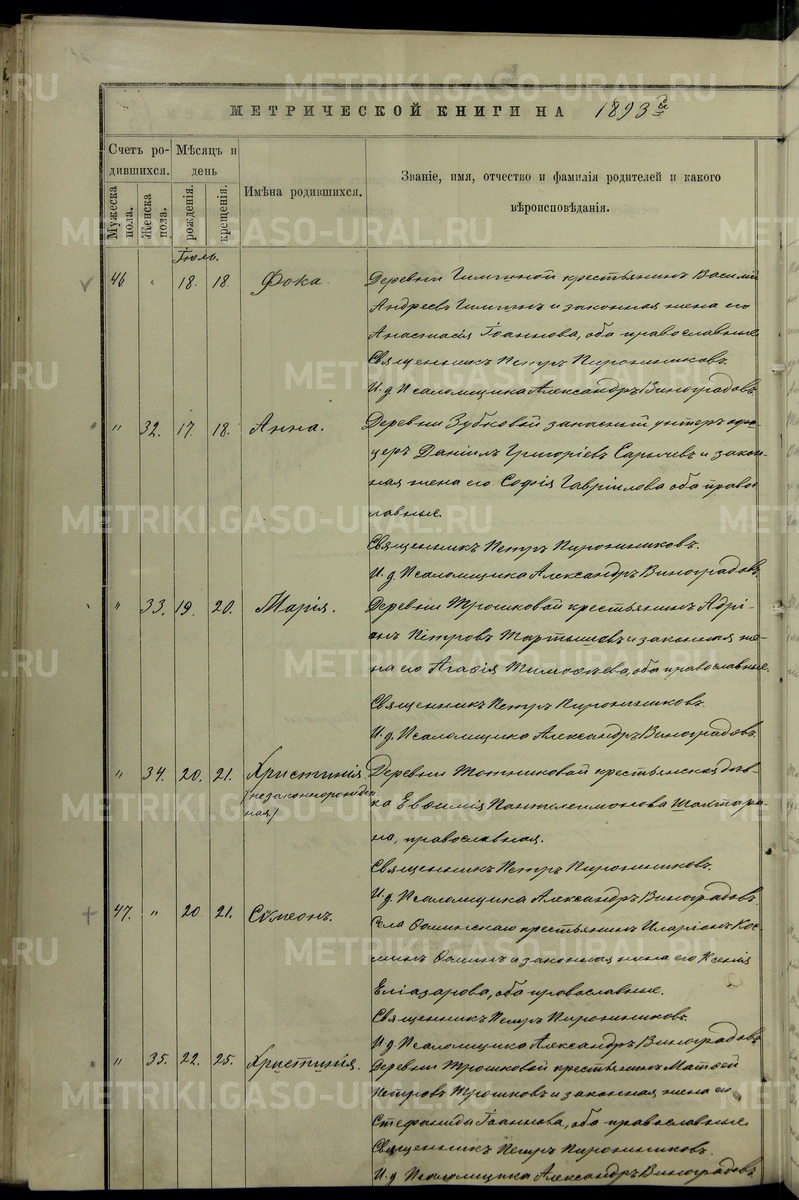 МЕТРИЧЕСКОЙ КНИГИ НА 1893 й
Счетъ ро-
дившихся.
Мужеска
пола.
Женска
пола.
Мѣсяцъ и
день
рожденія.
крещенія.
Имѣна родившихся.
Званіе, имя, отчество и фамилія родителей и какого
вѣроисповѣданія.
Іюль.
46 " 18. 18. Фока.
Деревни крестьянинъ Василій
Андреевъ и законная жена его
Анастасія Іоаннова, оба православные.
Священникъ Петръ Пироженниковъ.
И. д. Псаломщика Александръ Виноградовъ.
" 32. 17. 18. Анна.
Деревни Зубковой запасный унтеръ офи-
церъ Даніилъ Григоріевъ Сарычевъ и закон-
ная жена его Софія Гавріилова оба право-
славные.
Священникъ Петръ Пироженниковъ.
И. д. Псаломщика Александръ Виноградовъ.
" 33. 19. 20. Марія.
Деревни Трошковой крестьянинъ Адрі-
анъ Петровъ Мартышевъ и законная же-
на его Агафія Тимофѣева, оба православные.
Священникъ Петръ Пироженниковъ.
И. д. Псаломщика Александръ Виноградовъ.
" 34. 20. 21. Христинія
(незаконнорожден-
ная)
Деревни крестьянская дѣв-
ка Евѳимія Пантелеимонова Шахтари-
на, православная.
Священникъ Петръ Пироженниковъ.
И. д. Псаломщика Александръ Виноградовъ.
47. " 20 21. Сѵмеонъ.
Села Ѳоминскаго крестьянинъ Иларіонъ Кос-
минъ Ѳоминъ и законная жена его Ксенія
Еліазарова, оба православные.
Священникъ Петръ Пироженниковъ.
И. д. Псаломщика Александръ Виноградовъ
" 35. 22. 25. Христинія.
Деревни Трошковой крестьянинъ Матѳей
Петровъ Трошковъ и законная жена его
Стефанида Іоаннова, оба православные.
Священникъ Петръ Пироженниковъ.
И. д. Псаломщика Александръ Виноградовъ.
METRIKI.GASO-URAL.RU